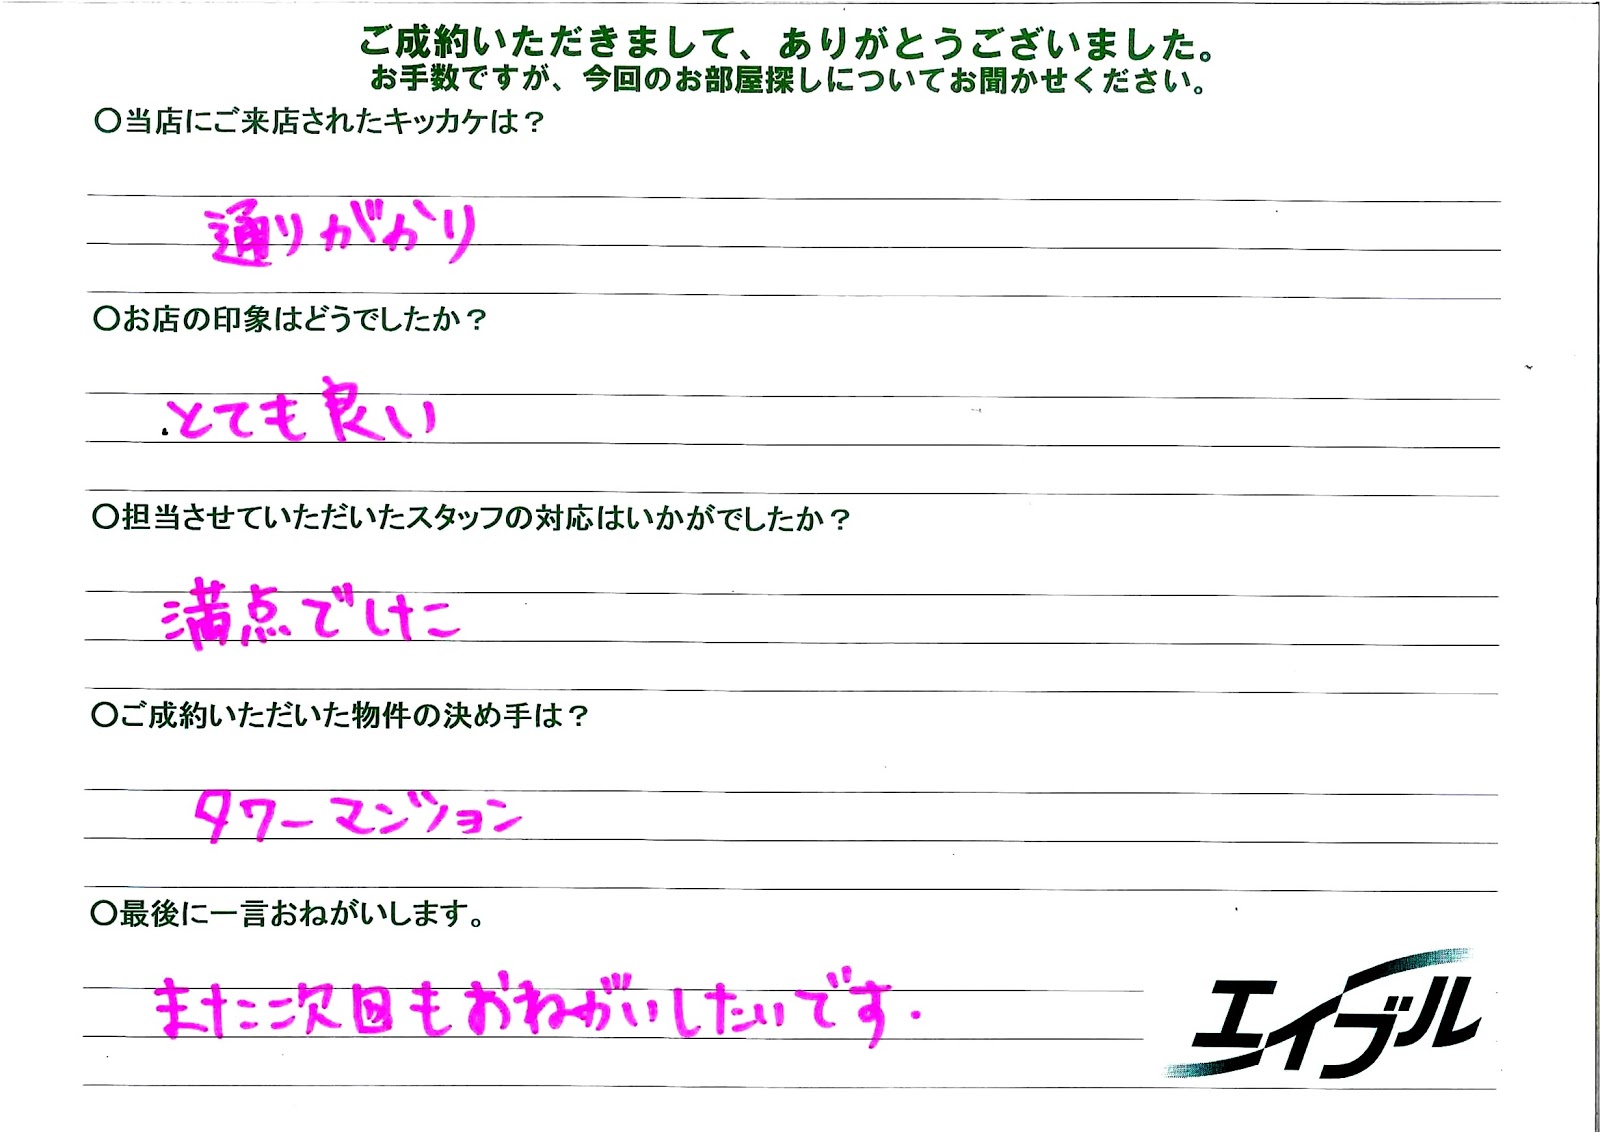 ご成約いただきまして、ありがとうございました。
お手数ですが、今回のお部屋探しについてお聞かせください。
〇当店にご来店されたキッカケは？
通りがかり
〇お店の印象はどうでしたか？
とても良い
〇担当させていただいたスタッフの対応はいかがでしたか？
満点でした
〇ご成約いただいた物件の決め手は？
タワーマンション
〇最後に一言おねがいします。
また次回もおねがいしたいです.
エイブル